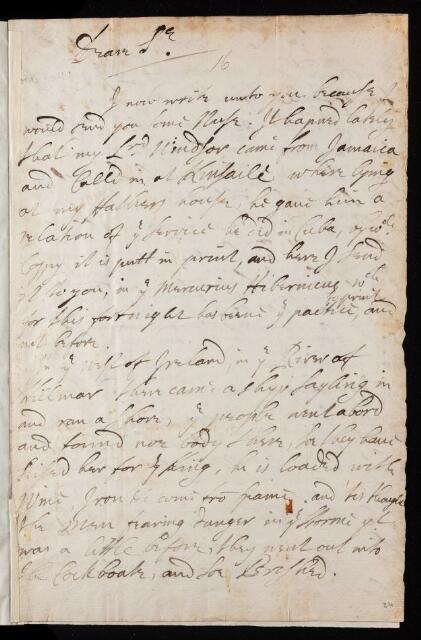 Deare Sr.
16
I now write unto you because I
would send you some Nuse. It hapned lately
that my Lrd Windsor came from Jamaica
and Called in at Kinsaile where lying
at my ffathers house, he gave him a
relation of ye service he did in Cuba, of wch
Coppy it is putt in print, and here I send
it to you, in ye Mercurius Hibernicus wch
for this fortnight has bene ye practice, to print and
not before.
In ye west of Ireland, in ye River of
Killmar there came a shipe sayling in
and ran a shore, ye people went abord
and found noe body there, soe they have
seised her for ye king, he is loaded with
Wine Iron &c come fro spaine. and tis thought
the Men fearing danger in ye storme yt
was a little before, they went out into
the Cockboate, and soe Perished.
24